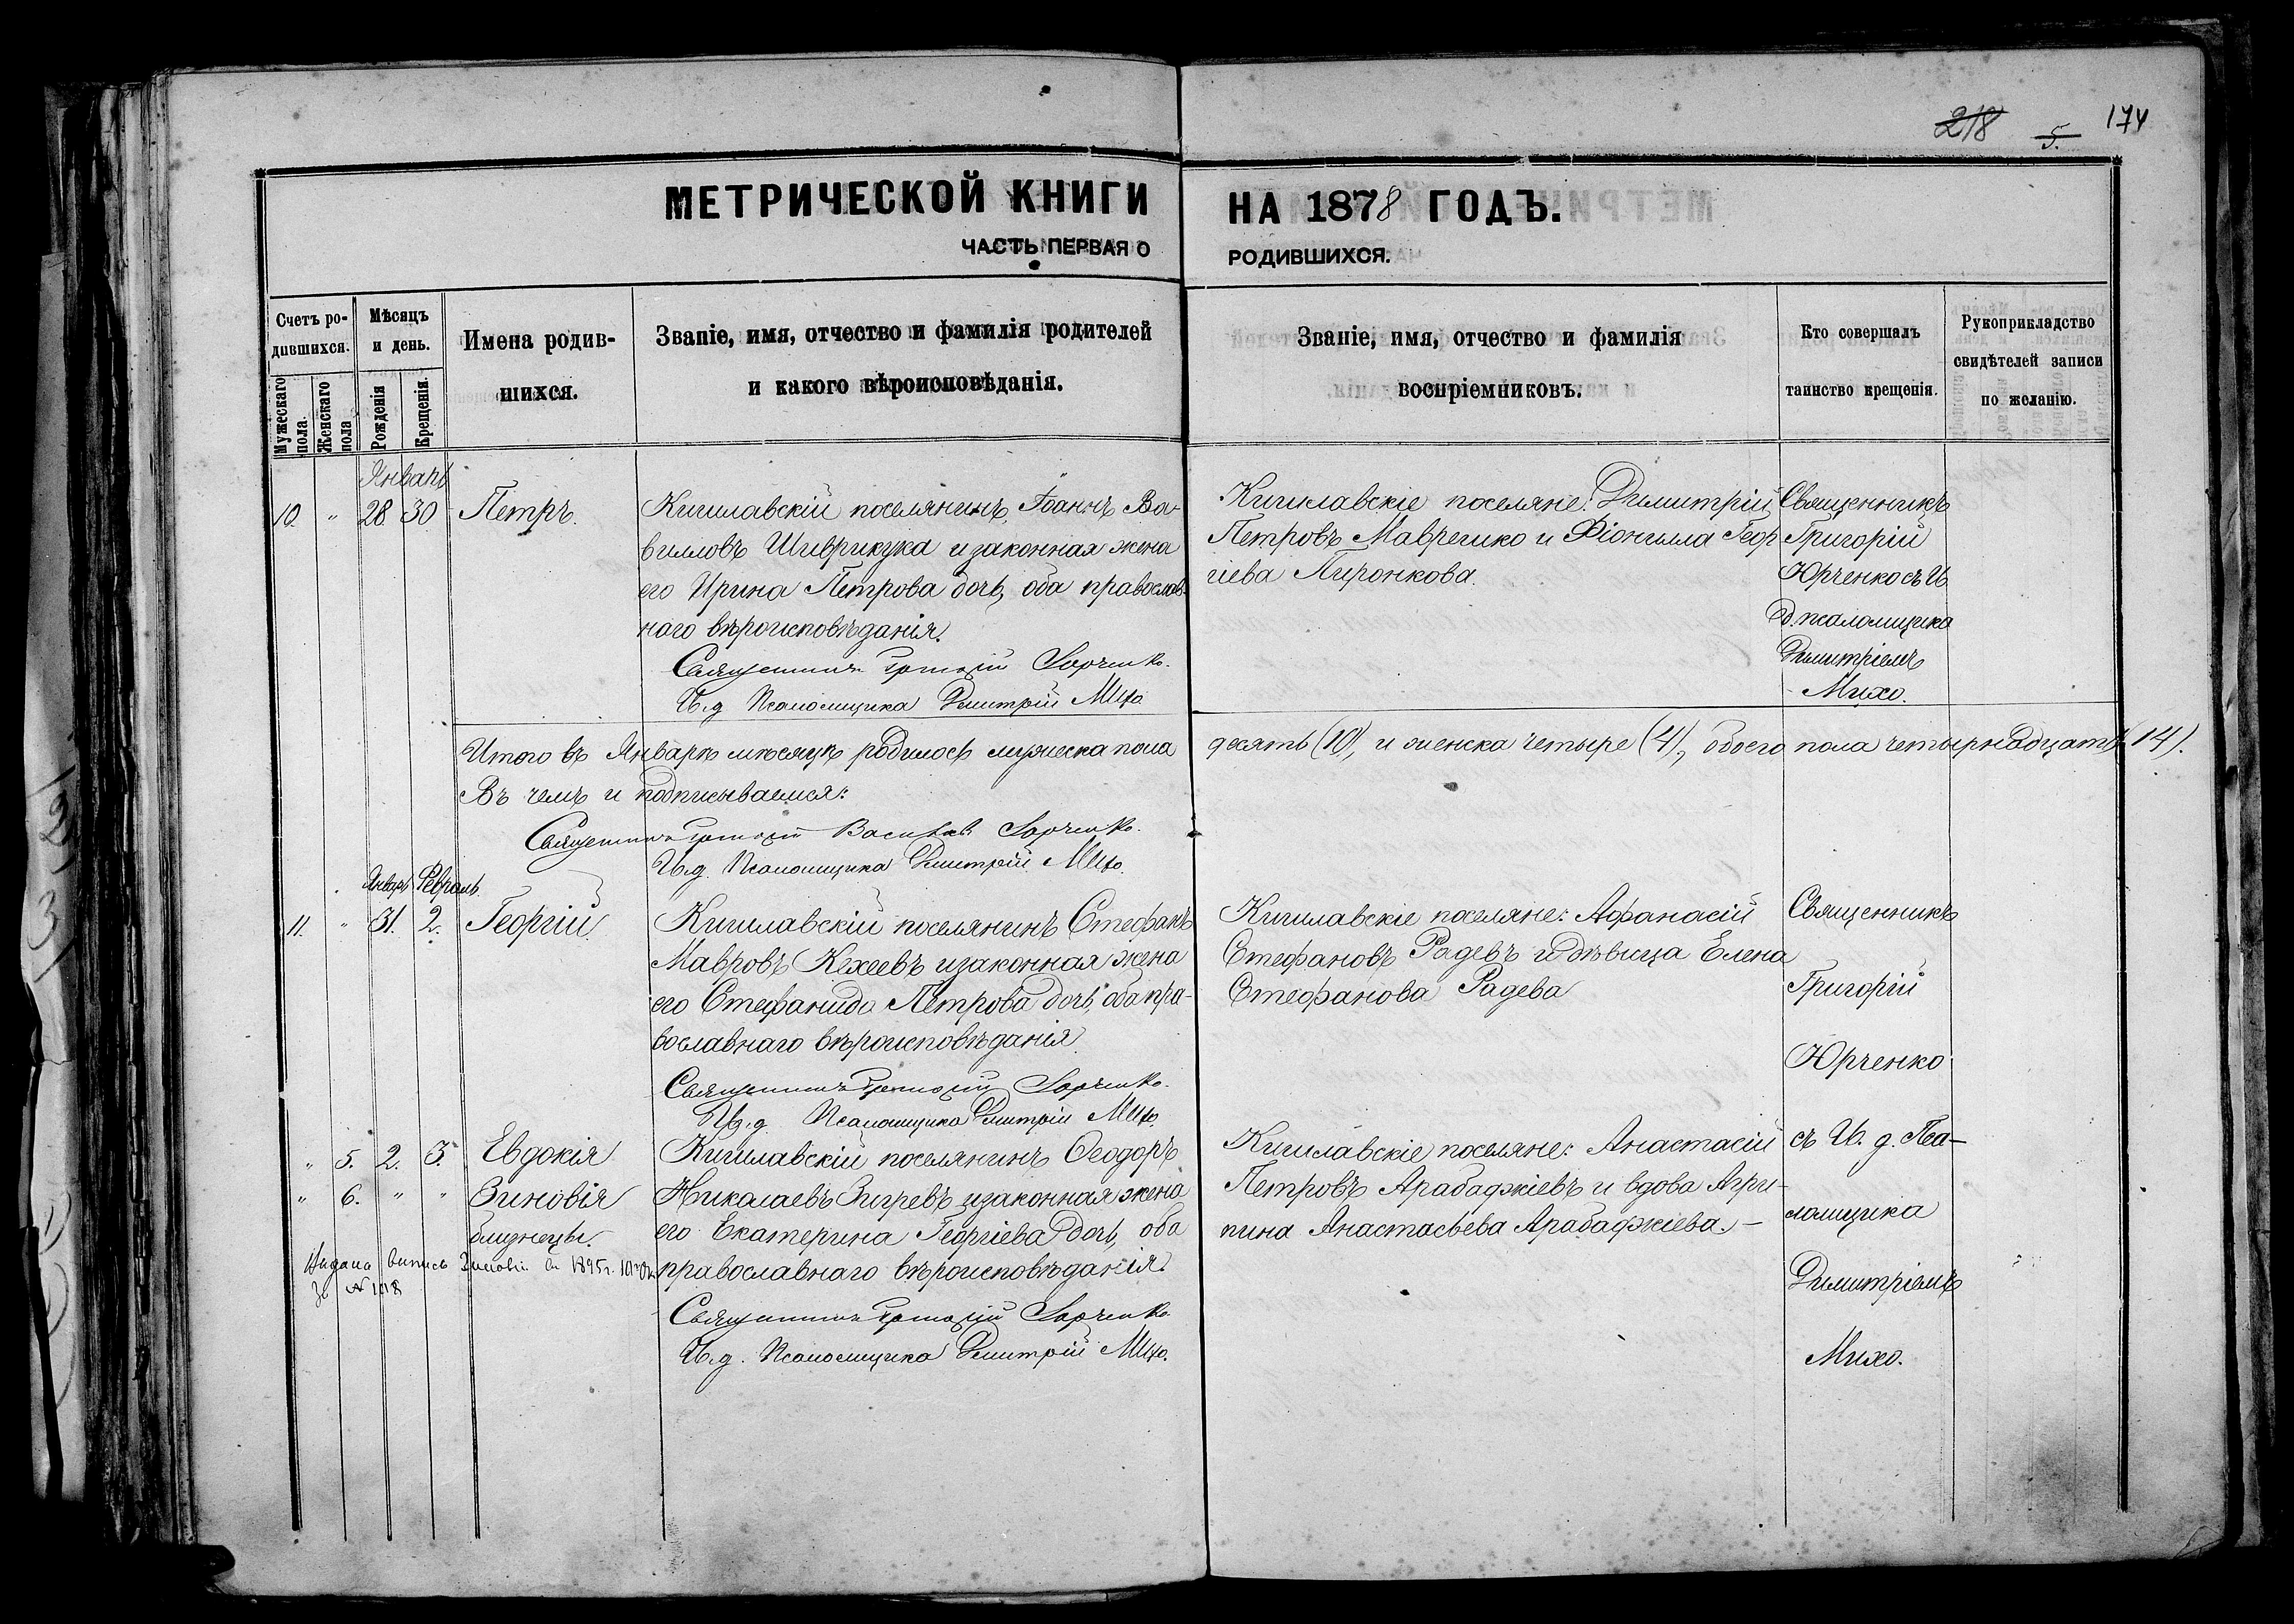 218 5. 174
МЕТРИЧЕСКОЙ КНИГИ НА 1878 ГОДЪ.
ЧАСТЬ ПЕРВАЯ О РОДИВШИХСЯ.
Счетъ ро-
дившихся.
Мужескаго пола.
Женскаго пола
Мѣсяцъ
и день.
Рожденія
Крещенія.
Имена родив-
шихся.
Званіе, имя, отчество и фамилія родителей
и какого вѣроисповѣданія.
Званіе, имя, отчество и фамилія
воспріемниковъ.
Кто совершалъ
таинство крещенія.
Рукоприкладство
свидѣтелей записи
по желанію.
Январь
10. " 28 30 Петръ.
Кишлавскій поселянинъ, Іоаннъ Ва-
вилловъ Шиврикука и законная жена
его Ирина Петрова дочь, оба православ-
наго вѣроисповѣданія.
Священникъ Григорій Юрченко.
И.д. Псаломщика Димитрій Михо.
Кишлавскіе поселяне: Димитрій
Петровъ Маврешко и Фіонилла Геор
гіева Пиронкова.
Священникъ
Григорій
Юрченко съ И.
д. псаломщика
Димитріемъ
Михо.
Итого въ Январѣ мѣсяцѣ родилось мужеска пола десять (10), и женска четыре (4), обоего пола четырнадцать (14).
Въ чемъ и подписываемся:
Священникъ Григорій Васильев Юрченко.
И.д. Псаломщика Димитрій Михо.
Январь Февраль.
11. " 31. 2. Георгій.
Кишлавскій поселянинъ Стефанъ
Мавровъ Кехеевъ и законная жена
его Стефанида Петрова дочь, оба пра-
вославнаго вѣроисповѣданія
Священникъ Григорій Юрченко.
И.д. Псаломщика Димитрій Михо.
Кишлавскіе поселяне: Афанасій
Стефановъ Радевъ и дѣвица Елена
Стефанова Радева
Священникъ
Григорій
Юрченко
" 5. 2. 3. Евдокія
" 6. " " Зиновія
близнецы.
Выдана выпись Зиновіи въ 1895 г.
за № 118
Кишлавскій поселянинъ Ѳеодоръ
Николаевъ Зигревъ и законная жена
его Екатерина Георгіева дочь, оба
православнаго вѣроисповѣданія.
Священникъ Григорій Юрченко
И.д. Псаломщика Димитрій Михо.
Кишлавскіе поселяне: Анастасій
Петровъ Арабаджіевъ и вдова Агри-
пина Анастасьева Арабаджіева. –
съ И. д. Пса-
ломщика
Димитріемъ
Михо.